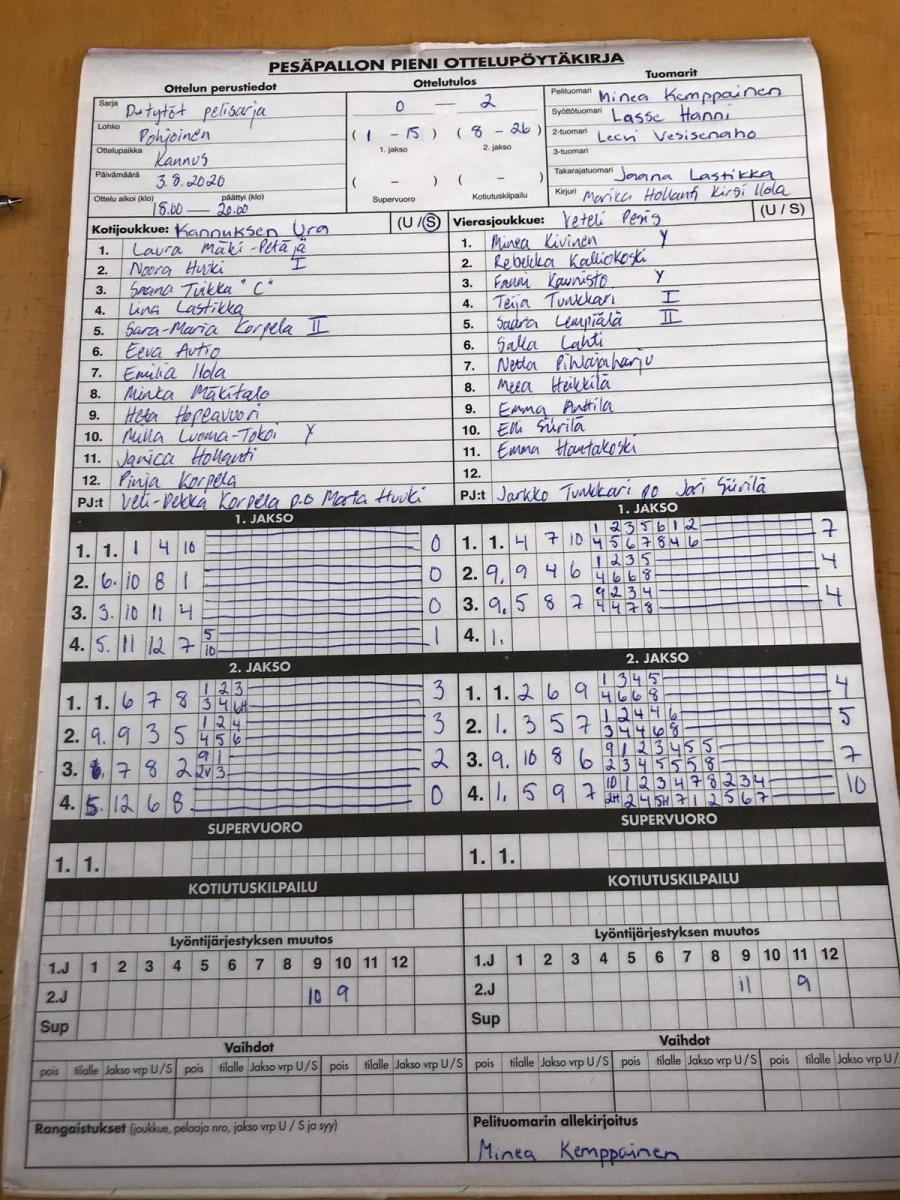 PESÄPALLON PIENI OTTELUPÖYTÄKIRJA
Ottelun perustiedot
Ottelutulos
Tuomarit
Sarja D-tytöt pelisarja
Lohko Pohjoinen
Ottelupaikka Kannus
Päivämäärä 3.8.2020
Ottelu alkoi (klo) päättyi (klo)
18.00 — 20.00
0 — 2
( 1 - 15 ) ( 8 - 26 )
1. jakso 2. jakso
( - ) ( - )
Supervuoro Kotiutuskilpailu
Pelituomari Minea Kemppainen
Syöttötuomari Lasse Hanni
2-tuomari Leevi Vesisenaho
3-tuomari
Takarajatuomari Jaana Lastikka
Kirjuri Marika Hollanti Kirsi Ilola
Kotijoukkue: Kannuksen Ura (U / S)
1. Laura Mäki-Petäjä
2. Noora Huuki I
3. Saana Tuikka "C"
4. Iina Lastikka
5. Sara-Maria Korpela II
6. Eeva Autio
7. Emilia Ilola
8. Minka Mäkitalo
9. Heta Hopeavuori
10. Milla Luoma-Tokoi Y
11. Janica Hollanti
12. Pinja Korpela
PJ:t Veli-Pekka Korpela p.o Maria Huuki
Vierasjoukkue: Veteli Pesis (U / S)
1. Minea Kivinen Y
2. Rebekka Kalliokoski
3. Fanni Kaunisto Y
4. Teija Tunkkari I
5. Saara Lempiälä II
6. Salla Lahti
7. Netta Pihlajaharju
8. Meea Heikkilä
9. Emma Anttila
10. Elli Siirilä
11. Emma Hautakoski
12.
PJ:t Jarkko Tunkkari po Jari Siirilä
1. JAKSO
1. 1. 1 4 10 0
2. 6. 10 8 1 0
3. 3. 10 11 4 0
4. 5. 11 12 7 5 1
10
2. JAKSO
1. 1. 6 7 8 1 2 3 3
3 4 6H
2. 9. 9 3 5 1 2 4 3
4 5 6
3. 7 8 2 9 1 2
2V 3
4. 5. 12 6 8 0
SUPERVUORO
1. 1.
KOTIUTUSKILPAILU
1. JAKSO
1. 1. 4 7 10 1 2 3 5 6 1 2 7
4 5 6 7 8 4 6
2. 9. 9 4 6 1 2 3 5 4
4 6 6 8
3. 9. 5 8 7 9 2 3 4 4
4 4 7 8
4. 1.
2. JAKSO
1. 1. 2 6 9 1 3 4 5 4
4 6 6 8
2. 1. 3 5 7 1 2 4 4 6 5
3 4 4 6 8
3. 9. 10 8 6 9 1 2 3 4 5 5 7
2 3 4 5 5 5 8
4. 1. 5 9 7 10 1 2 3 4 7 8 2 3 4 10
2H 2 4 5H 7 1 2 5 6 7
SUPERVUORO
1. 1.
KOTIUTUSKILPAILU
Lyöntijärjestyksen muutos
1.J 1 2 3 4 5 6 7 8 9 10 11 12
2.J 10 9
Sup
Vaihdot
pois tilalle Jakso vrp U / S pois tilalle Jakso vrp U / S pois tilalle Jakso vrp U / S
Rangaistukset (joukkue, pelaaja nro, jakso vrp U / S ja syy)
Lyöntijärjestyksen muutos
1.J 1 2 3 4 5 6 7 8 9 10 11 12
2.J 11 9
Sup
Vaihdot
pois tilalle Jakso vrp U / S pois tilalle Jakso vrp U / S pois tilalle Jakso vrp U /
Pelituomarin allekirjoitus
Minea Kemppainen